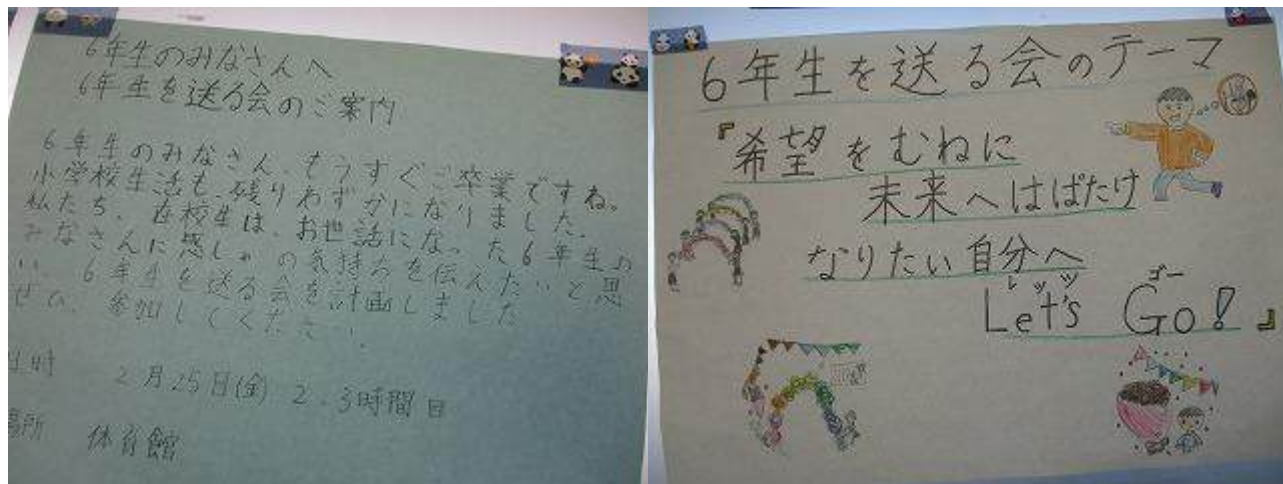 6年生のみなさんへ
6年生を送る会のご案内
6年生のみなさん、もうすぐご卒業ですね。
小学校生活も、残りわずかになりました。
私たち、在校生は、お世話になった6年生の
みなさんに感しゃの気持ちを伝えたいと思
い、6年生を送る会を計画しました
ぜひ、参加してください!
日時 2月25日(金) 2.3時間目
場所 体育館
6年生を送る会のテーマ
『希望をむねに
未来へはばたけ
なりたい自分へ
レッツ ゴー
Let's Go!』